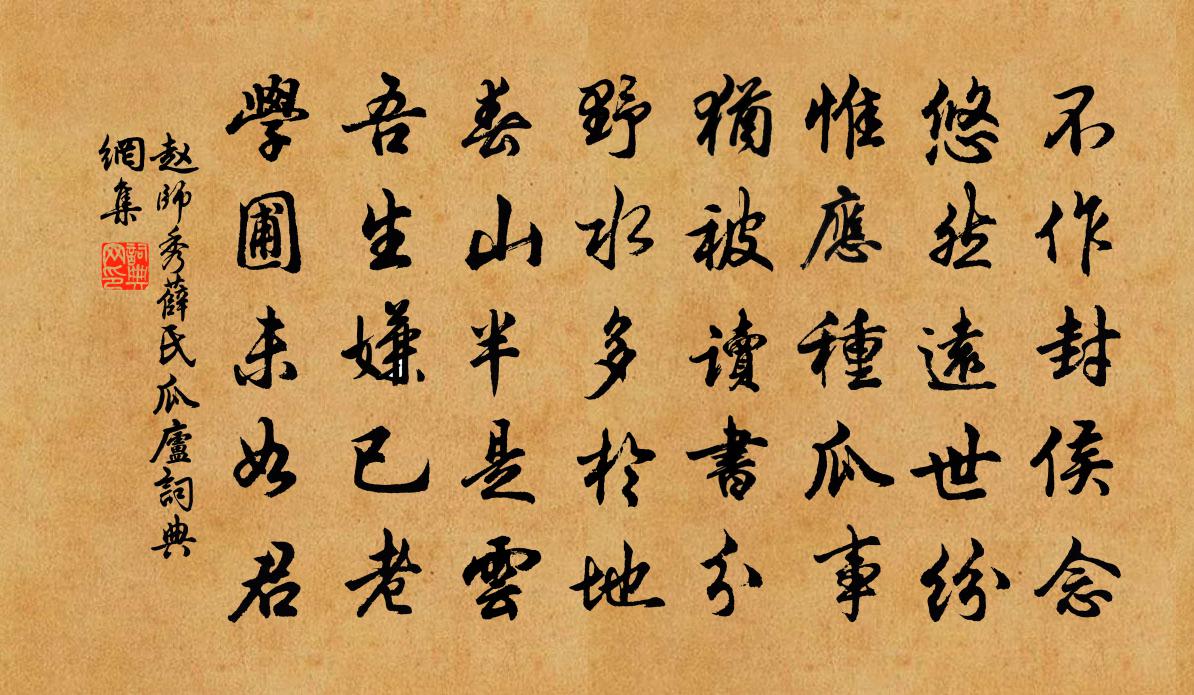 不作封侯念
悠然遠世紛
惟應種瓜事
猶被讀書分
野水多於地
春山半是雲
吾生嫌已老
學圃未如君
赵師秀薛氏瓜廬詞典
網集
詞典
网印